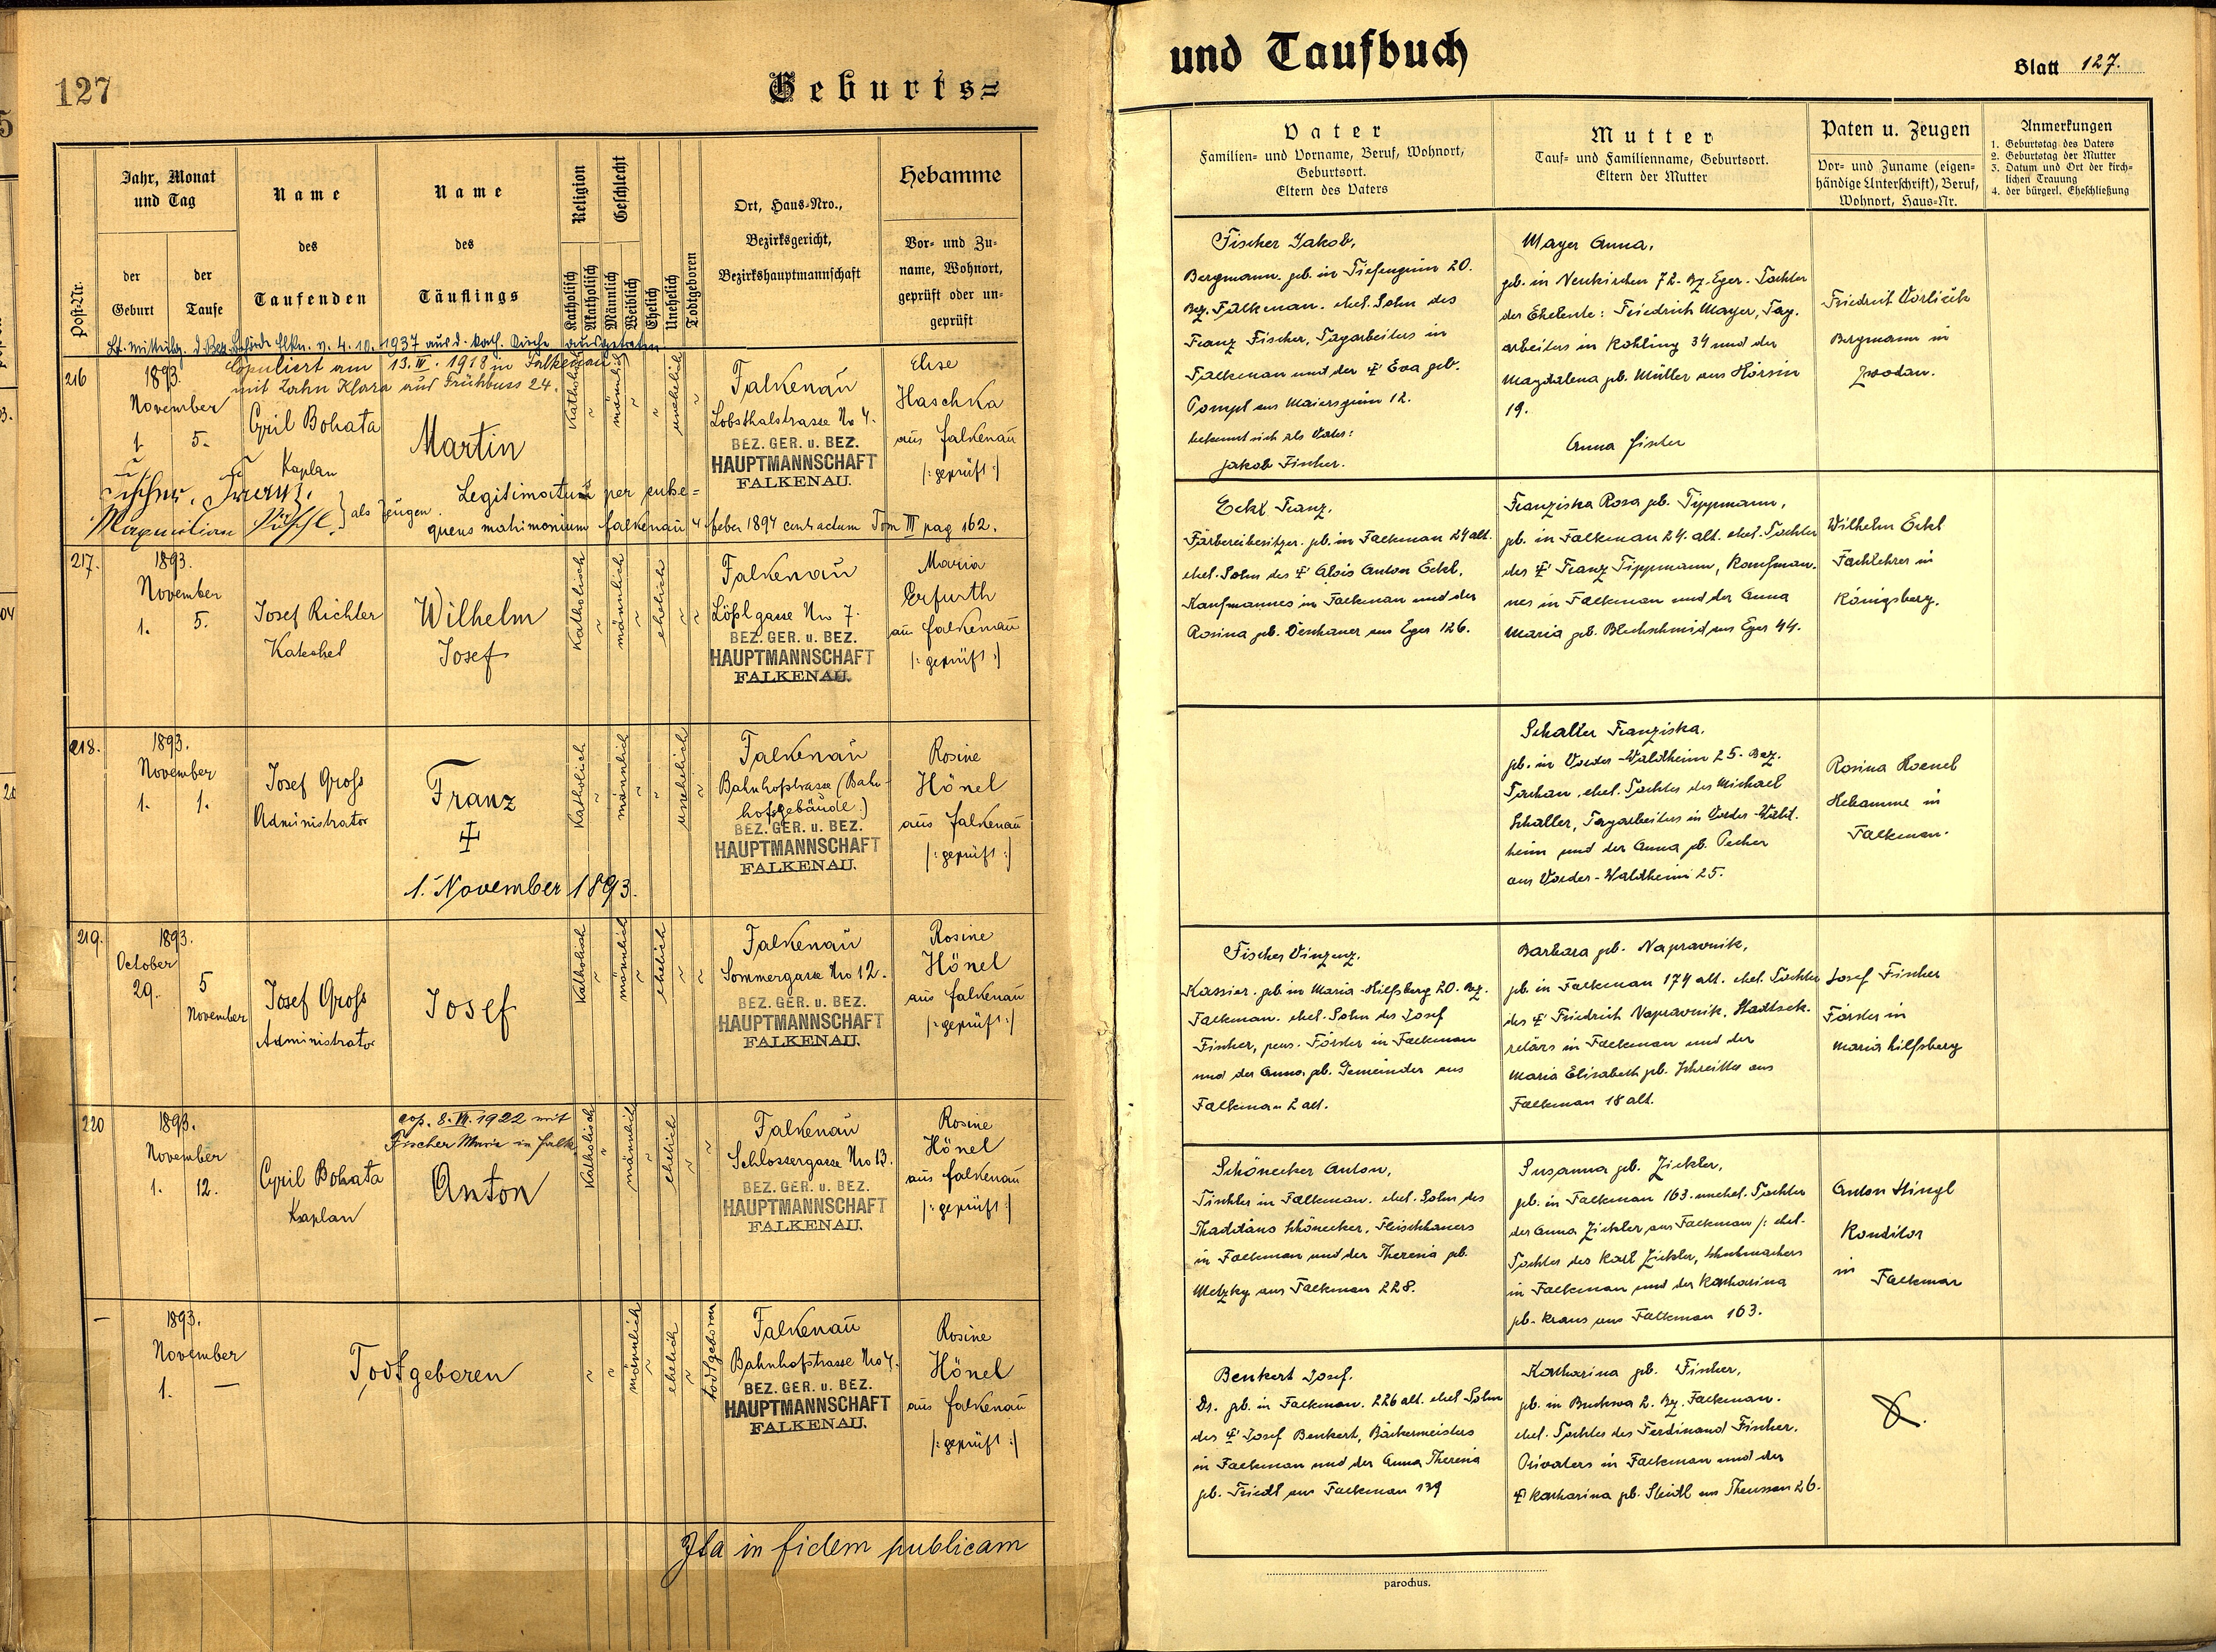 127
Geburts=
Jahr, Monat
und Tag
Name
Name
Religion
Geschlecht
Hebamme
Ort, Haus-Nro.,
des
des
Bezirksgericht,
Vor- und Zu-
der
der
Bezirkshauptmannschaft
name, Wohnort,
Post-Nr.
Geburt
Taufe
Taufenden
Täuflings
Katholisch
Akatholisch
Männlich
Weiblich
Ehelich
Unehelich
Todtgeboren
geprüft oder un-
geprüft
Lt. Mitteilg. d. Bez. Behörde Flkn. v. 4.10.1937 aus d. kath. Kirche ausgetreten
Copuliert am 13. IV. 1918 in Falkenau
mit Zahn Klara aus Frühbuss 24.
216
1893.
November
1.
5.
Cyril Bohata
Kaplan
Martin
Katholisch
männlich
unehelich
Falkenau
Lobsthalstrasse No 4.
BEZ. GER. u. BEZ.
HAUPTMANNSCHAFT
FALKENAU.
Elise
Haschka
aus Falkenau
/: geprüft :/
Fischer, Franz.
Maxmilian Pöschl.
als Zeugen.
Legitimatum per subse=
quens matrimonium Falkenau 4. Feber 1894 contractum Tom III pag 162.
217.
1893.
November
1.
5.
Josef Richter
Katechet
Wilhelm
Josef
Katholisch
männlich
ehelich
Falkenau
Lößlgasse No 7.
BEZ. GER. u. BEZ.
HAUPTMANNSCHAFT
FALKENAU.
Maria
Erfurth
aus Falkenau
/: geprüft :/
218.
1893.
November
1.
1.
Josef Groß
Administrator
Franz
1. November 1893.
Katholisch
männlich
unehelich
Falkenau
Bahnhofstrasse (Bahn-
hofsgebäude.)
BEZ. GER. u. BEZ.
HAUPTMANNSCHAFT
FALKENAU.
Rosine
Hönel
aus Falkenau
/: geprüft :/
219.
1893.
October
29.
5
November
Josef Groß
Administrator
Josef
Katholisch
männlich
ehelich
Falkenau
Sommergasse No 12.
BEZ. GER. u. BEZ.
HAUPTMANNSCHAFT
FALKENAU.
Rosine
Hönel
aus Falkenau
/: geprüft :/
220
1893.
November
1.
12.
Cyril Bohata
Kaplan
cop. 8. VII. 1922 mit
Fischer Maria in Falk.
Anton
Katholisch
männlich
ehelich
Falkenau
Schlossergasse No 13.
BEZ. GER. u. BEZ.
HAUPTMANNSCHAFT
FALKENAU.
Rosine
Hönel
aus Falkenau
/: geprüft :/
1893.
November
1. —
Todtgeboren
männlich
ehelich
todtgeboren
Falkenau
Bahnhofstrasse No 4.
BEZ. GER. u. BEZ.
HAUPTMANNSCHAFT
FALKENAU.
Rosine
Hönel
aus Falkenau
/: geprüft :/
Ita in fidem publicam
und Taufbuch
Blatt 127.
Vater
Familien- und Vorname, Beruf, Wohnort,
Geburtsort.
Eltern des Vaters
Mutter
Tauf- und Familienname, Geburtsort.
Eltern der Mutter
Paten u. Zeugen
Vor- und Zuname (eigen-
händige Unterschrift), Beruf,
Wohnort, Haus-Nr.
Anmerkungen
1. Geburtstag des Vaters
2. Geburtstag der Mutter
3. Datum und Ort der kirch-
lichen Trauung
4. der bürgerl. Eheschließung
Fischer Jakob,
Bergmann. geb. in Tiefengrün 20.
Bez. Falkenau. ehel. Sohn des
Franz Fischer, Tagarbeiters in
Falkenau und der Eva geb.
Pompl aus Maiersgrün 12.
bekennt sich als Vater:
Jakob Fischer.
Mayer Anna,
geb. in Neukirchen 72. Bz. Eger. Tochter
der Eheleute: Friedrich Mayer, Tag-
arbeiters in Kohling 34 und der
Magdalena geb. Müller aus Horsin
19.
Anna Fischer
Friedrich Vorlicek
Bergmann in
Zwodau.
Eckl Franz,
Färbereibesitzer. geb. in Falkenau 24 alt.
ehel. Sohn des Alois Anton Eckl,
Kaufmannes in Falkenau und der
Rosina geb. Denhauer aus Eger 126.
Franziska Rosa geb. Tippmann,
geb. in Falkenau 24. alt. ehel. Tochter
des Franz Tippmann, Kaufman-
nes in Falkenau und der Anna
Maria geb. Blechschmid aus Eger 44.
Wilhelm Eckl
Fachlehrer in
Königsberg.
Schaller Franziska,
geb. in Vorder-Waldheim 25. Bez.
Tachau. ehel. Tochter des Michael
Schaller, Tagarbeiters in Vorder-Wald-
heim und der Anna geb. Pecher
aus Vorder-Waldheim 25.
Rosina Hoenel
Hebamme in
Falkenau.
Fischer Vinzenz,
Kassier. geb. in Maria-Hilfsberg 20. Bez.
Falkenau. ehel. Sohn des Josef
Fischer, pens. Förster in Falkenau
und der Anna geb. Gemeinder aus
Falkenau 2 alt.
Barbara geb. Napravnik,
geb. in Falkenau 174 alt. ehel. Tochter
des Friedrich Napravnik, Stadtsek-
retärs in Falkenau und der
Maria Elisabeth geb. Schreitter aus
Falkenau 18 alt.
Josef Fischer
Förster in
Maria hilfsberg
Schönecker Anton,
Tischler in Falkenau. ehel. Sohn des
Thaddäus Schönecker, Fleischhauers
in Falkenau und der Theresia geb.
Metzky aus Falkenau 228.
Susanna geb. Zickler,
geb. in Falkenau 163. unehel. Tochter
der Anna Zickler aus Falkenau /: ehel.
Tochter des Karl Zickler, Schuhmachers
in Falkenau und der Katharina
geb. Kraus aus Falkenau 163.
Anton Hingl
Konditor
in
Falkenau
Benkert Josef,
Dr. geb. in Falkenau. 226 alt. ehel Sohn
des Josef Benkert, Bäckermeisters
in Falkenau und der Anna Theresia
geb. Friedl aus Falkenau 139
Katharina geb. Fischer,
geb. in Buckwa 2. Bz. Falkenau.
ehel. Tochter des Ferdinand Fischer,
Privatiers in Falkenau und der
Katharina geb. Steidl aus Theussau 26.
parochus.